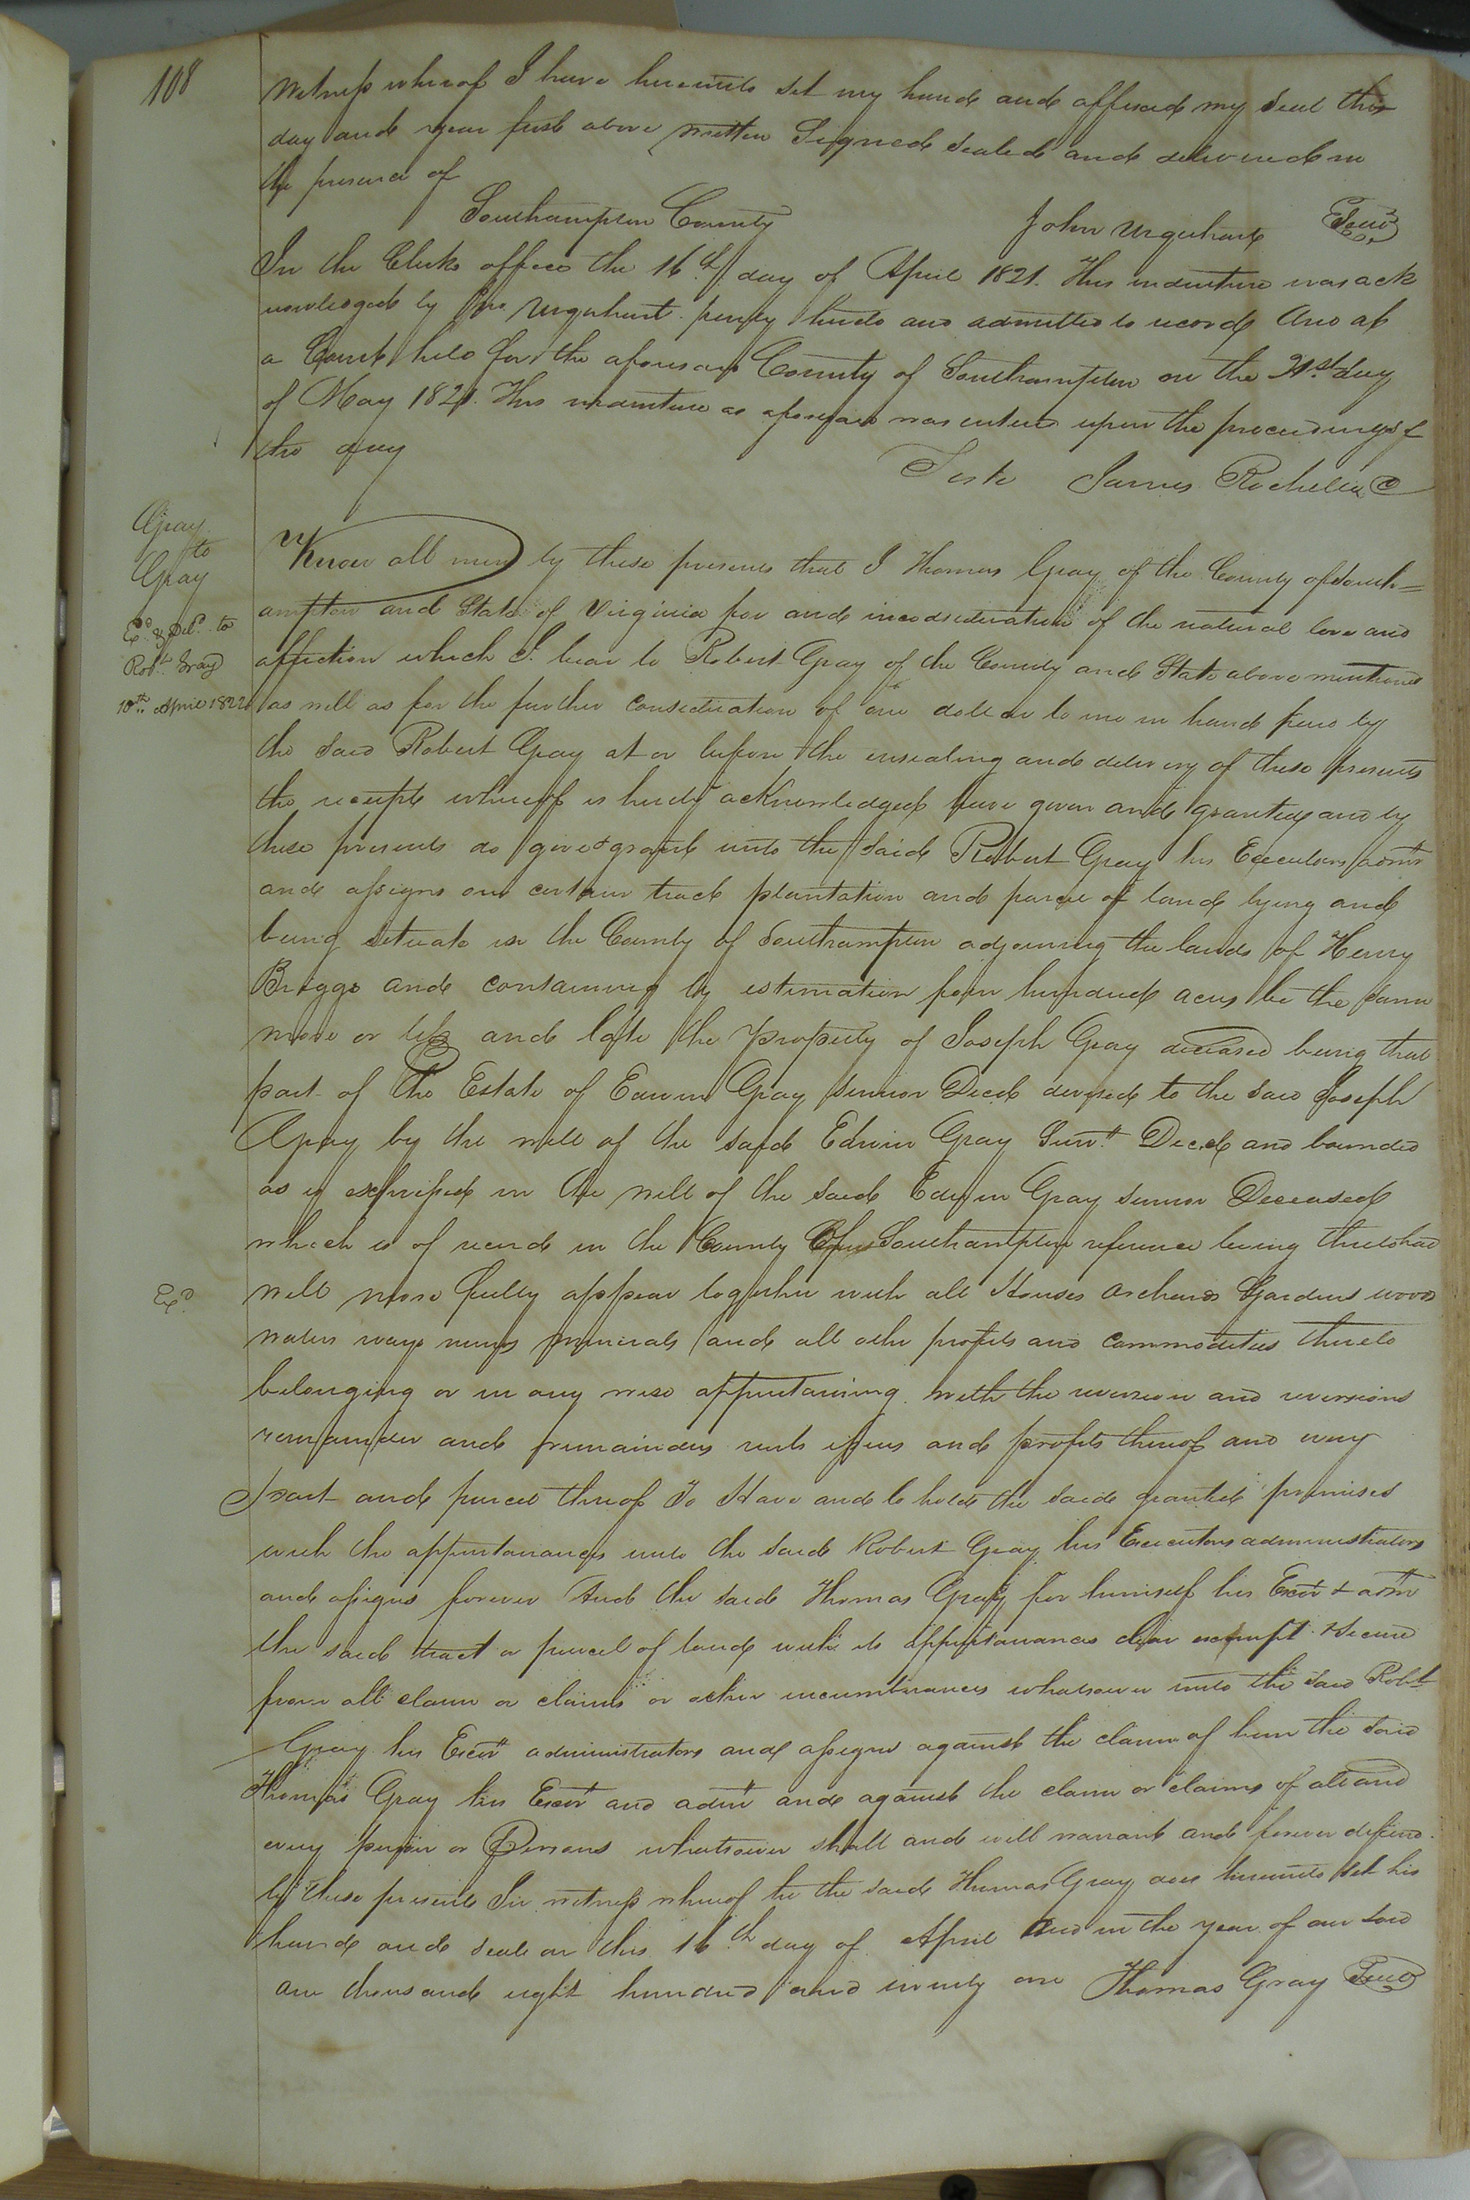 108
Witness whereof I have hereunto set my hand and affixed my Seal this
day and year first above written Signed Sealed and delivered in
the presence of
Southampton County John Urquhart Seal
In the Clerks office the 16th day of April 1821. This indenture was ack
nowledged by Jno Urquhart party hereto and admitted to record And at
a Court held for the aforesaid County of Southampton on the 21st day
of May 1821. This indenture as aforesaid was entered upon the proceedings of
the day
Teste James Rochelle C
Gray
to
Gray
Exd & Deld. to
Robt. Gray
10th April 1822
Know all men by these presents that I Thomas Gray of the County of South=
ampton and State of Virginia for and in consideration of the natural love and
affection which I bear to Robert Gray of the County and State above mentioned
as well as for the further consideration of one dollar to me in hand paid by
the said Robert Gray at or before the ensealing and delivery of these presents
the receipt whereof is hereby acknowledged have given and granted and by
these presents do give & grant unto the said Robert Gray his Executors admrs
and assigns one certain track plantation and parcel of land lying and
being situate in the County of Southampton adjoining the lands of Henry
Briggs and containing by estimation four hundred acres be the same
more or less and late the property of Joseph Gray deceased being that
part of the Estate of Edwin Gray senior Decd devised to the said Joseph
Gray by the will of the said Edwin Gray Senr Decd and bounded
as is in the will of the said Edwin Gray senior Deceased
which is of record in the County Southampton reference being thereto had
Exd.
will more fully appear together with all Houses orchards Gardens woods
waters ways minerals and all other profits and commodities thereto
belonging or in any wise appertaining with the reversion and reversions
remainder and remainders rents issues and profits thereof and every
part and parcel thereof To Have and to hold the said granted premises
with the appurtenances unto the said Robert Gray his Executors administrators
and assigns forever And the said Thomas Gray for himself his Exors & adm
the said tract or parcel of land with its appurtenances clear exempt & secure
from all claim or claims or other incumbrances whatsoever unto the said Robt
Gray his Exors administrators and assigns against the claim of him the said
Thomas Gray his Exors and admrs and against the claim or claims of all and
every person or Persons whatsoever shall and will warrant and forever defend
by these presents In witness whereof he the said Thomas Gray does hereunto set his
hand and seal on this 16th day of April And in the year of our Lord
one thousand eight hundred and twenty one Thomas Gray Seal